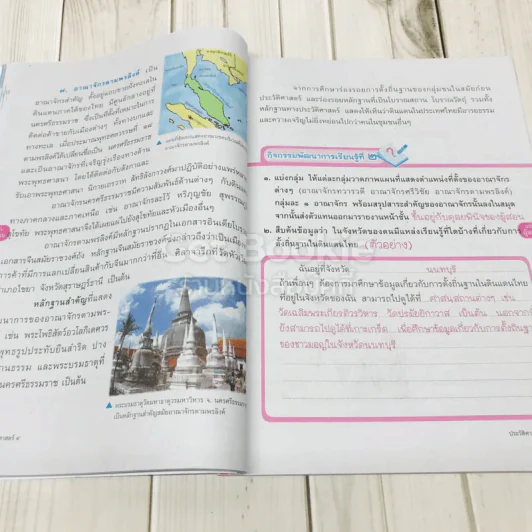 ๗. อาณาจักรตามพรลิงค์ เป็น
อาณาจักรสำคัญ ตั้งอยู่แถบชายฝั่งทะเลใน
ดินแดนภาคใต้ของไทย มีศูนย์กลางอยู่ที่
นครศรีธรรมราช
ติดต่อค้าขายกับเมืองต่างๆ ทั้งทางบกและ
ทางทะเล เมื่อประมาณพุทธศตวรรษที่ ๑๘
ตามพรลิงค์ได้เปลี่ยนชื่อเป็น นครศรีธรรมราช
และเป็นอาณาจักรที่เจริญรุ่งเรืองทางด้าน
พระพุทธศาสนา โดยได้ติดต่อกับลังกาและ
รับเอาพระพุทธศาสนา นิกายเถรวาท ลัทธิลังกาวงศ์มาปฏิบัติอย่างแพร่หลาย
อาณาจักรนครศรีธรรมราชมีความสัมพันธ์ด้านต่างๆ กับดินแดน
ทางภาคกลางและภาคเหนือ เช่น อาณาจักรละโว้ หริภุญชัย สุพรรณภูมิ
สุโขทัย พระพุทธศาสนาจึงได้เผยแผ่ไปยังสุโขทัยและหัวเมืองอื่นๆ
อาณาจักรตามพรลิงค์มีหลักฐานปรากฏในเอกสารอินเดียโบราณ
หลักฐานสำคัญที่แสดง
นาการของอาณาจักรตามพร-
เช่น พระโพธิสัตว์อวโลกิเตศวร
พุทธรูปประทับยืนสำริด ปาง
านธรรม และพระบรมธาตุที่
นครศรีธรรมราช เป็นต้น
พระบรมธาตุวัดมหาธาตุวรมหาวิหาร จ. นครศรีธรรมราช
เป็นหลักฐานสำคัญสมัยอาณาจักรตามพรลิงค์
จากการศึกษาร่องรอยการตั้งถิ่นฐานของกลุ่มชนในสมัยก่อน
ประวัติศาสตร์ และร่องรอยหลักฐานที่เป็นโบราณสถาน โบราณวัตถุ รวมทั้ง
หลักฐานทางประวัติศาสตร์ แสดงให้เห็นว่าดินแดนในประเทศไทยมีอารยธรรม
และความเจริญไม่ยิ่งหย่อนไปกว่าดินแดนในชุมชนอื่นๆ
กิจกรรมพัฒนาการเรียนรู้ที่ ๒
๑. แบ่งกลุ่ม ให้แต่ละกลุ่มวาดภาพแผนที่แสดงตำแหน่งที่ตั้งของอาณาจักร
ต่างๆ (อาณาจักรทวารวดี อาณาจักรศรีวิชัย อาณาจักรตามพรลิงค์)
กลุ่มละ ๑ อาณาจักร พร้อมสรุปสาระสำคัญของอาณาจักรนั้นลงในสมุด
จากนั้นส่งตัวแทนออกมารายงานหน้าชั้น ขึ้นอยู่กับดุลยพินิจของผู้สอน
๒. สืบค้นข้อมูลว่า ในจังหวัดของตนมีแหล่งเรียนรู้ใดบ้างที่เกี่ยวกับการ
ตั้งถิ่นฐานในดินแดนไทย (ตัวอย่าง)
ฉันอยู่ที่จังหวัด นนทบุรี
ถ้าเพื่อนๆ ต้องการศึกษาข้อมูลเกี่ยวกับการตั้งถิ่นฐานในดินแดนไทย
ที่อยู่ในจังหวัดของฉัน สามารถไปดูได้ที่ ศาสนสถานต่างๆ เช่น
วัดเฉลิมพระเกียรติวรวิหาร วัดปรมัยยิกาวาส เป็นต้น นอกจากนี้
ยังสามารถไปดูได้ที่เกาะเกร็ด เพื่อศึกษาข้อมูลเกี่ยวกับการตั้งถิ่นฐาน
ของชาวมอญในจังหวัดนนทบุรี